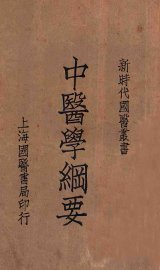 新時代國醫叢書
中醫學綱要
上海國醫書局印行